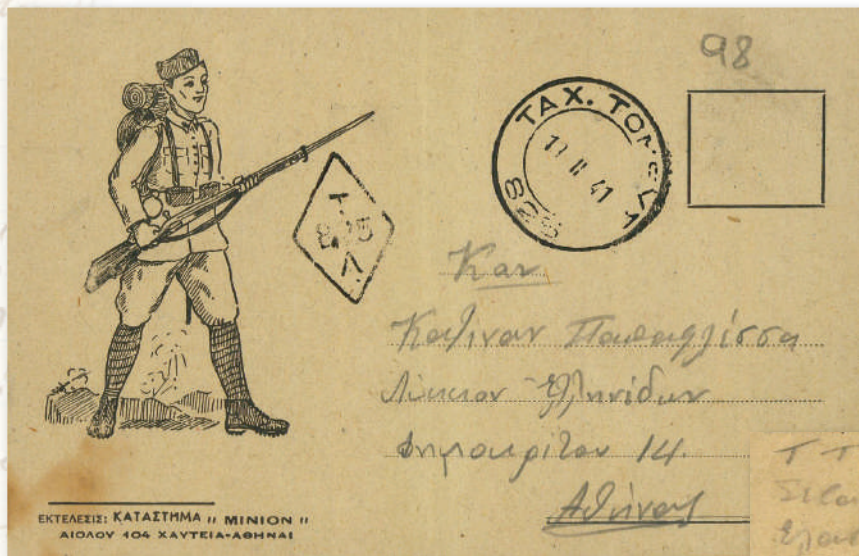 98
ΤΑΧ. ΤΟΜΕΥΣ
17 II 41
825
Τ
825
Λ
Καν
Κατιναν Παπαφλέσσα
Λύκειον Ἑλληνίδων
Δημοκρίτου 14.
Ἀθήνας
Τ Τ
ΕΚΤΕΛΕΣΙΣ: ΚΑΤΑΣΤΗΜΑ " ΜΙΝΙΟΝ "
ΑΙΟΛΟΥ 104 ΧΑΥΤΕΙΑ-ΑΘΗΝΑΙ